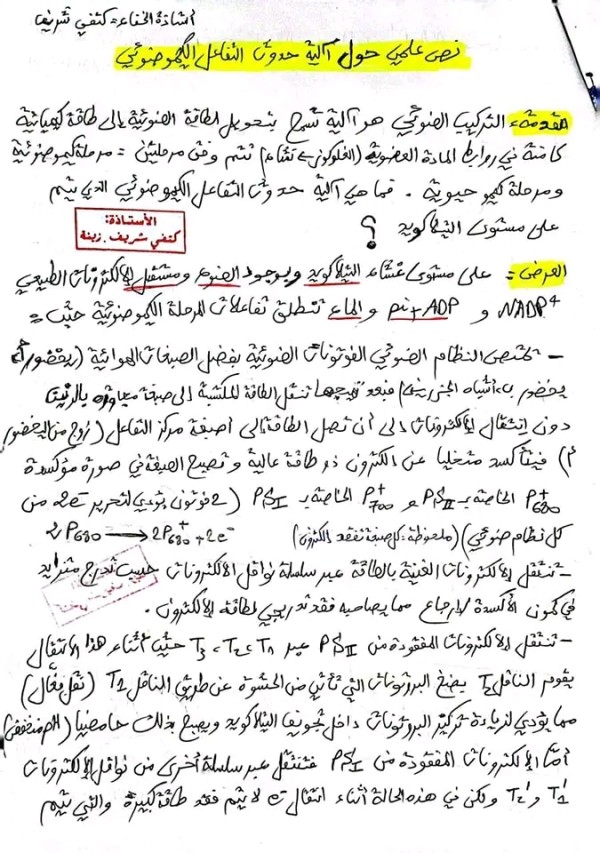 أستاذة الخفاء = كتفي شريف
نص علمي حول آلية حدوث التفاعل الكيموضوئي
مقدمة: التركيب الضوئي هو آلية تسمح بتحويل الطاقة الضوئية إلى طاقة كيميائية
كامنة في روابط المادة العضوية (الغلوكوز، نشاء) تتم وفق مرحلتين = مرحلة كيموضوئية
ومرحلة كيموحيوية . فما هي آلية حدوث التفاعل الكيموضوئي الذي يتم
على مستوى التيلاكويد ؟
الأستاذة:
كتفي شريف. زينة
العرض = على مستوى غشاء التيلاكويد وبوجود الضوء ومستقبل الإلكترونات الطبيعي
NADP+ و Pi+ADP و الماء تنطلق تفاعلات المرحلة الكيموضوئية حيث =
- تمتص النظام الضوئي الفوتونات الضوئية بفضل الصبغات الهوائية (يخضور أ
يخضور ب، أشباه الجزرين) فبعد تهيجها تنتقل الطاقة المكتسبة إلى صبغة مجاورة بالرنين
دون إنتقال الإلكترونات إلى أن تصل الطاقة إلى أصبغة مركز التفاعل (زوج من اليخضور
أ) فيتأكسد متخليا عن الكترون ذو طاقة عالية و تصبح الصبغة في صورة مؤكسدة
P680+ الخاصة بـ PSII و P700+ الخاصة بـ PSI (2 فوتون يؤدي لتحرير 2e- من
كل نظام ضوئي) (ملحوظة = كل صبغة تفقد إلكترون) 2P680 → 2P680+ + 2e-
- تنتقل الإلكترونات الغنية بالطاقة عبر سلسلة نواقل الإلكترونات حسب تدرج متزايد
في كمون الأكسدة الإرجاع مما يصاحبه فقد تدريجي لطاقة الإلكترون .
- تنتقل الإلكترونات المفقودة من PSII عبر T1 ، T2 ، T3 حيث أثناء هذا الانتقال
يقوم الناقل T2 بضخ البروتونات التي تأتي من الحشوة عن طريق الناقل T2 (نقل فعّال)
مما يؤدي لزيادة تركيز البروتونات داخل تجويف التيلاكويد ويصبح بذلك حامضيا (PH منخفض)
أما الإلكترونات المفقودة من PSI فتنتقل عبر سلسلة أخرى من نواقل الإلكترونات
T'1 و T'2 ولكن في هذه الحالة أثناء انتقال e- لا يتم فقد طاقة كبيرة والتي يتم